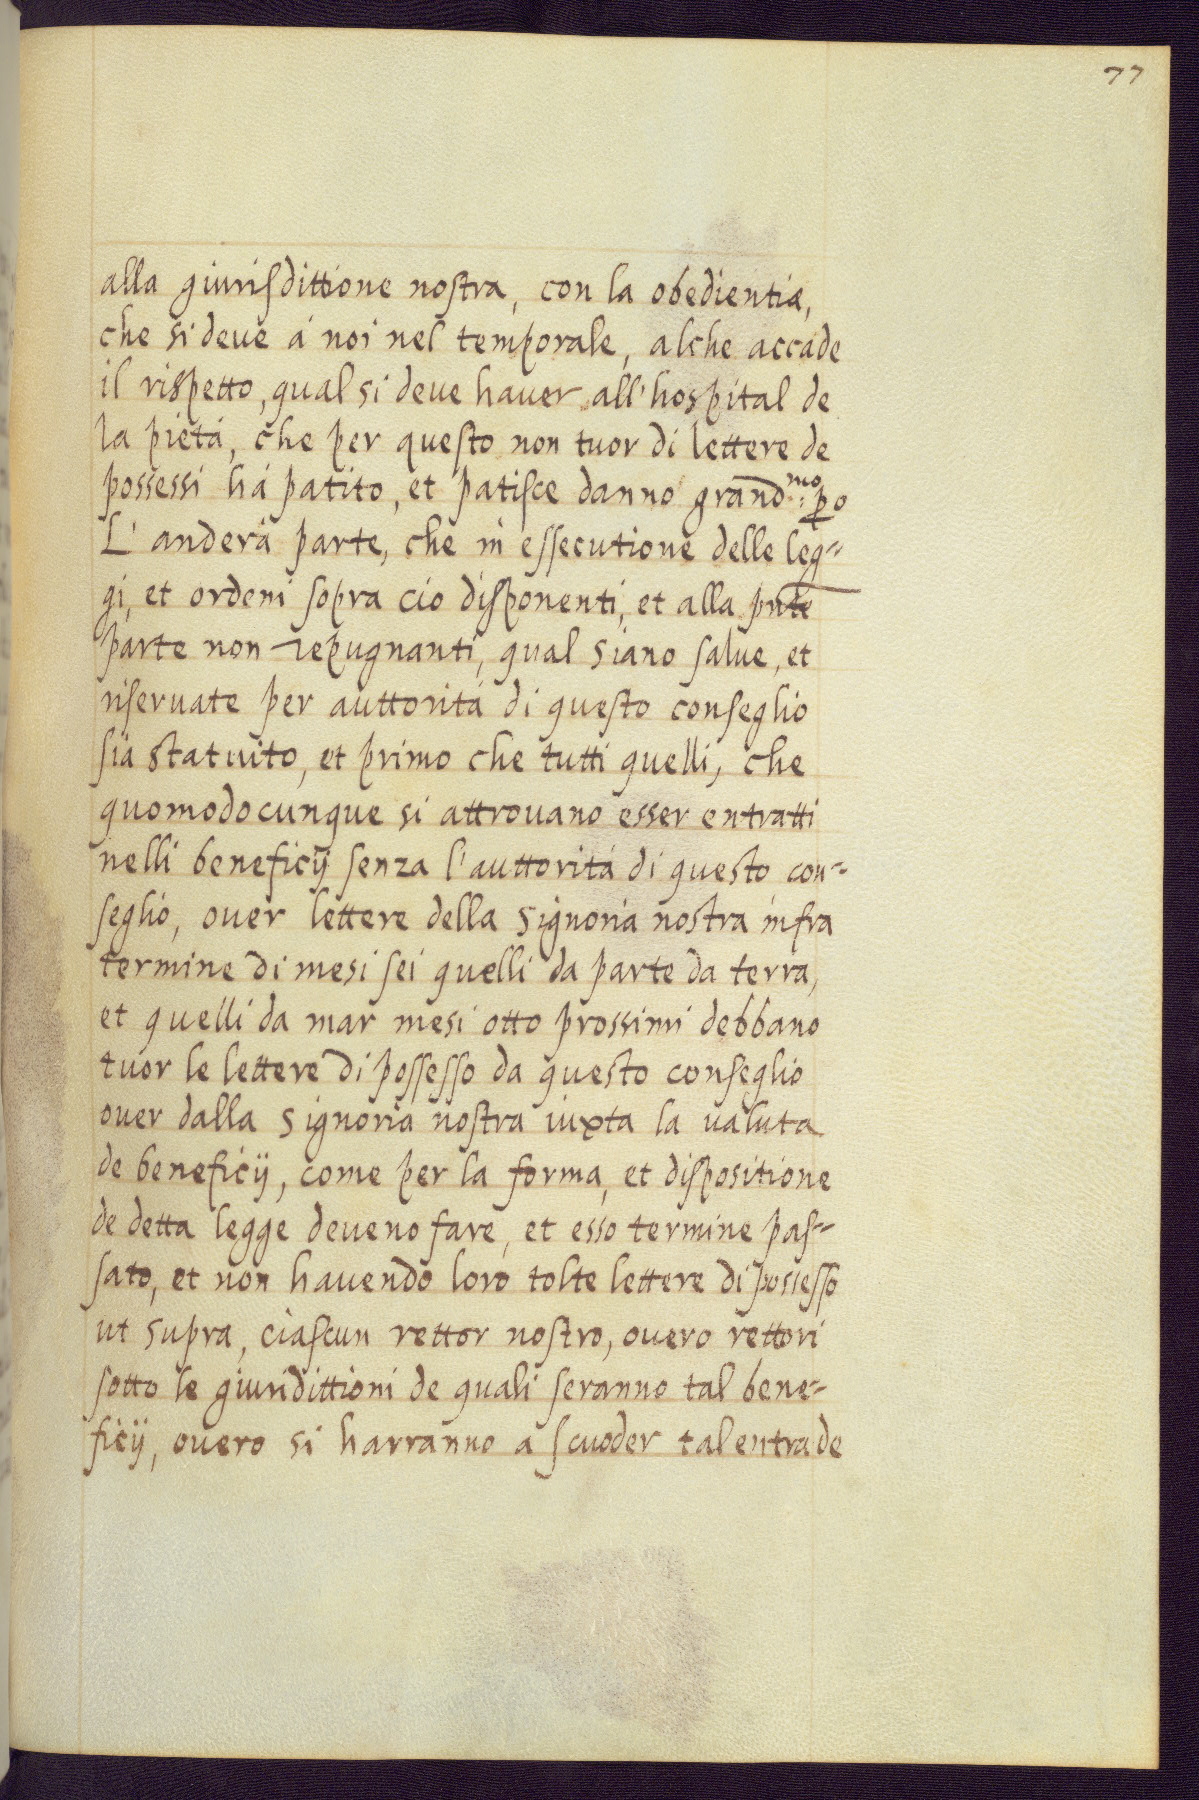 77
alla giurisdittione nostra, con la obedientia,
che si deve á noi nel temporale, alche accade
il rispetto, qual si deve haver all'hospital de
la pietá, che per questo non tuor di lettere de
possessi há patito, et patisce danno grand.mo però
L'anderá parte, che in essecutione delle leg-
gi, et ordeni sopra cio disponenti, et alla pnte
parte non repugnanti, qual siano salve, et
riservate per auttoritá di questo conseglio
sia statuito, et primo che tutti quelli, che
quomodocunque si attrovano esser entratti
nelli beneficij senza l'auttoritá di questo con-
seglio, over lettere della Signoria nostra infra
termine di mesi sei quelli da parte da terra,
et quelli da mar mesi otto prossimi debbano
tuor le lettere di possesso da questo conseglio
over dalla Signoria nostra iuxta la valuta
de beneficij, come per la forma, et dispositione
de detta legge deveno fare, et esso termine pas-
sato, et non havendo loro tolte lettere di possesso
ut supra, ciascun rettor nostro, overo rettori
sotto le giuridittioni de quali seranno tal bene-
ficij, overo si harranno a scuoder tal entrade